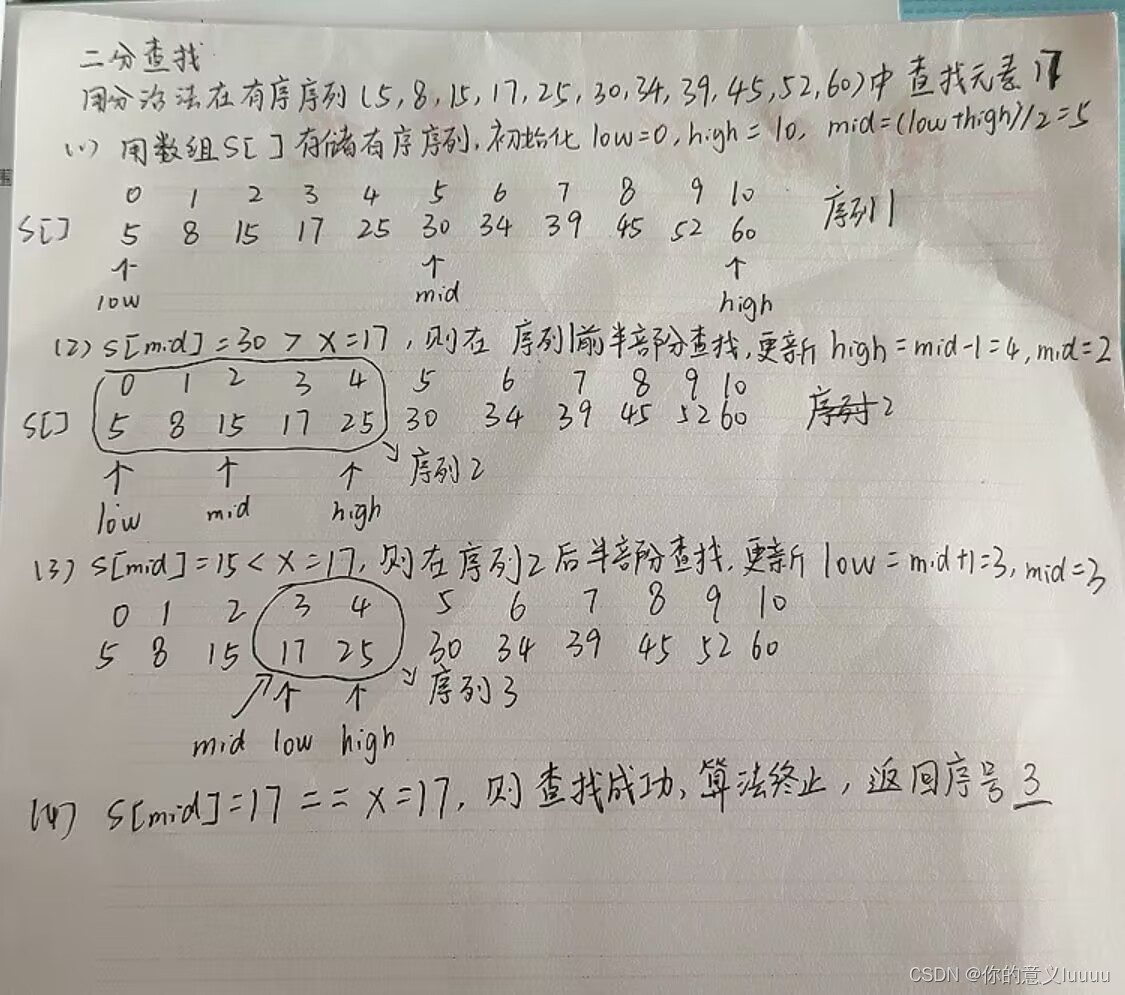 二分查找
用分治法在有序序列(5,8,15,17,25,30,34,39,45,52,60)中查找元素17
(1) 用数组S[ ]存储有序序列,初始化 low=0,high=10, mid=(low+high)/2=5
0 1 2 3 4 5 6 7 8 9 10
S[] 5 8 15 17 25 30 34 39 45 52 60 序列1
↑ ↑ ↑
low mid high
(2) S[mid]=30 > x=17,则在 序列1前半部分查找,更新 high=mid-1=4,mid=2
0 1 2 3 4 5 6 7 8 9 10
S[] 5 8 15 17 25 30 34 39 45 52 60 序列2
↑ ↑ ↑ ↘序列2
low mid high
(3) S[mid]=15 < x=17,则在序列2后半部份查找,更新 low=mid+1=3,mid=3
0 1 2 3 4 5 6 7 8 9 10
5 8 15 17 25 30 34 39 45 52 60
↗ ↑ ↑ ↘序列3
mid low high
(4) S[mid]=17 == x=17,则查找成功,算法终止,返回序号3
CSDN @你的意义luuuu